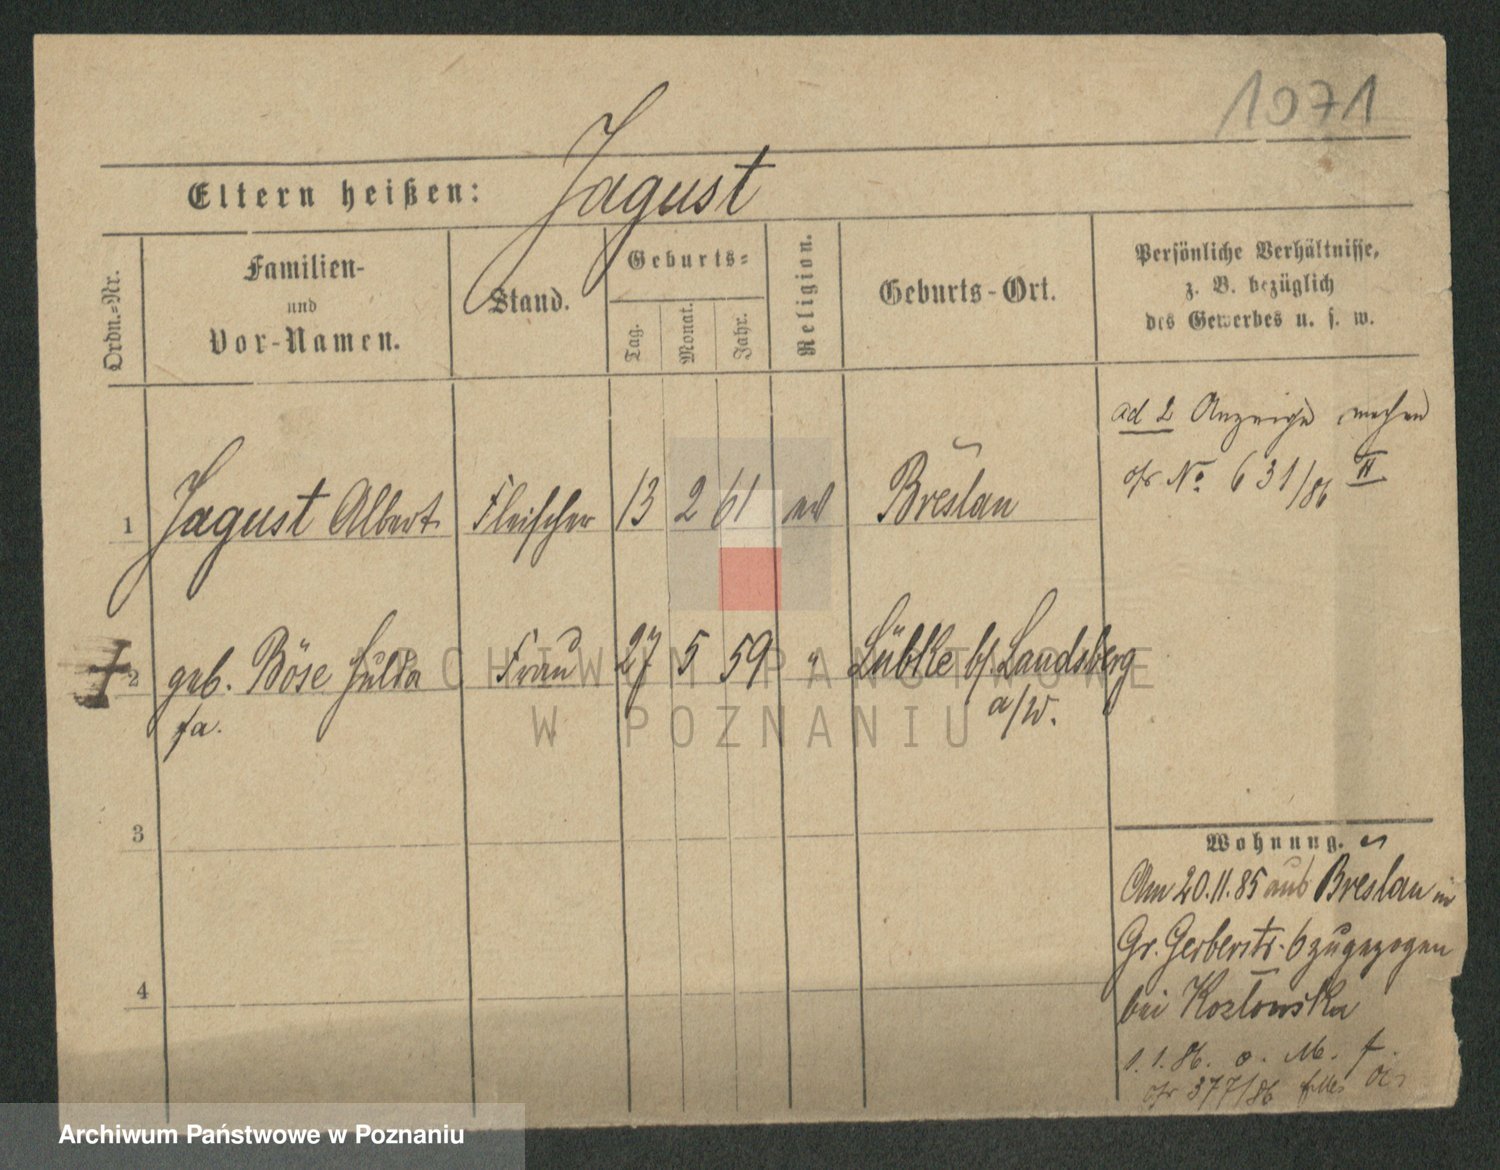 1071
Eltern heißen: Jagust
Ordn.-Nr.
Familien-
und
Vor-Namen.
Stand.
Geburts-
Tag.
Monat.
Jahr.
Religion.
Geburts-Ort.
Persönliche Verhältnisse,
z. B. bezüglich
des Gewerbes u. s. w.
ad 2 Anzeige machen
No 631/86 II
1 Jagust Albert Fleischer 13 2 61 ev Breslau
2 geb. Böse Hulda Frau 27 5 59 " Lübke b/ Landsberg
a/W.
3
4
Wohnung.
Am 20.11.85 aus Breslau in
Gr. Gerberstr. 6 zugezogen
bei Kozlowska
1.1.86. o. M. f.
377/86
ARCHIWUM PAŃSTWOWE
W POZNANIU
Archiwum Państwowe w Poznaniu